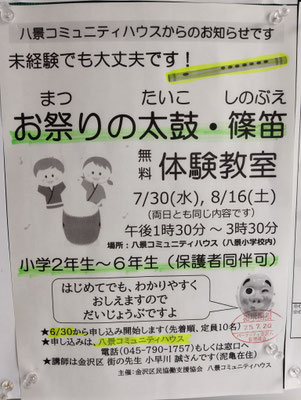 八景コミュニティハウスからのお知らせです
未経験でも大丈夫です！
まつ たいこ しのぶえ
お祭りの太鼓・篠笛
無料 体験教室
7/30(水), 8/16(土)
(両日とも同じ内容です)
午後1時30分～3時30分
場所：八景コミュニティハウス（八景小学校内）
小学2年生～6年生（保護者同伴可）
はじめてでも、わかりやすく
おしえますので
だいじょうぶですよ
★6/30から申し込み開始します(先着順、定員10名)
★申し込みは、八景コミュニティハウス
電話(045-790-1757)もしくは窓口へ
★講師は金沢区 街の先生 小早川 誠さんです(泥亀在住)
主催：金沢区民協働支援協会 八景コミュニティハウス